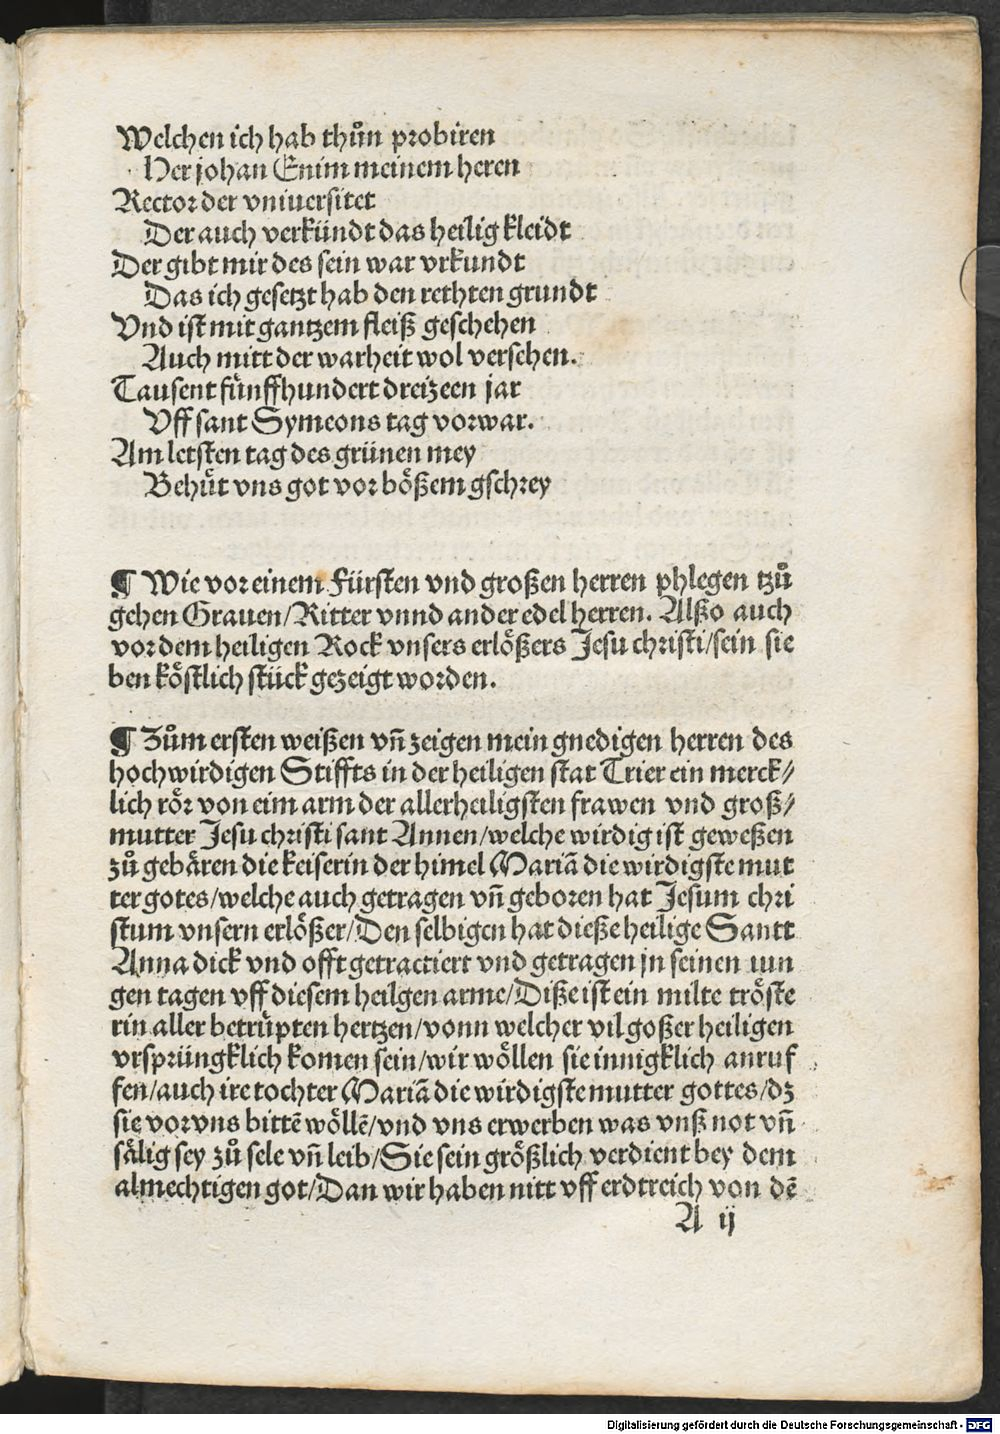 Welchen ich hab thůn probiren
Her johan Enim meinem heren
Rector der vniuersitet
Der auch verkündt das heilig kleidt
Der gibt mir des sein war vrkundt
Das ich gesetzt hab den rethten grundt
Vnd ist mit gantzem fleiß geschehen
Auch mitt der warheit wol versehen.
Tausent fünffhundert dreizeen jar
Vff sant Symeons tag vorwar.
Am letsten tag des grünen mey
Behüt vns got vor bößem gschrey
¶ Wie vor einem Fürsten vnd großen herren phlegen tzů
gehen Grauen/Ritter vnnd ander edel herren. Alßo auch
vor dem heiligen Rock vnsers erlößers Jesu christi/sein sie
ben köstlich stück gezeigt worden.
¶ Zům ersten weißen vñ zeigen mein gnedigen herren des
hochwirdigen Stiffts in der heiligen stat Trier ein merck/
lich rör von eim arm der allerheiligsten frawen vnd groß/
mutter Jesu christi sant Annen/welche wirdig ist geweßen
zů gebären die keiserin der himel Mariā die wirdigste mut
ter gotes/welche auch getragen vñ geboren hat Jesum chri
stum vnsern erlößer/Den selbigen hat dieße heilige Santt
Anna dick vnd offt getractiert vnd getragen jn seinen iun
gen tagen vff diesem heilgen arme/Diße ist ein milte tröste
rin aller betrüpten hertzen/vonn welcher vil goßer heiligen
vrsprüngklich komen sein/wir wöllen sie innigklich anruf
fen/auch ire tochter Mariā die wirdigste mutter gottes/dz
sie vor vns bittē wöllē/vnd vns erwerben was vnß not vñ
sälig sey zů sele vñ leib/Sie sein größlich verdient bey dem
almechtigen got/Dan wir haben nitt vff erdtreich von dē
A ij
Digitalisierung gefördert durch die Deutsche Forschungsgemeinschaft - DFG